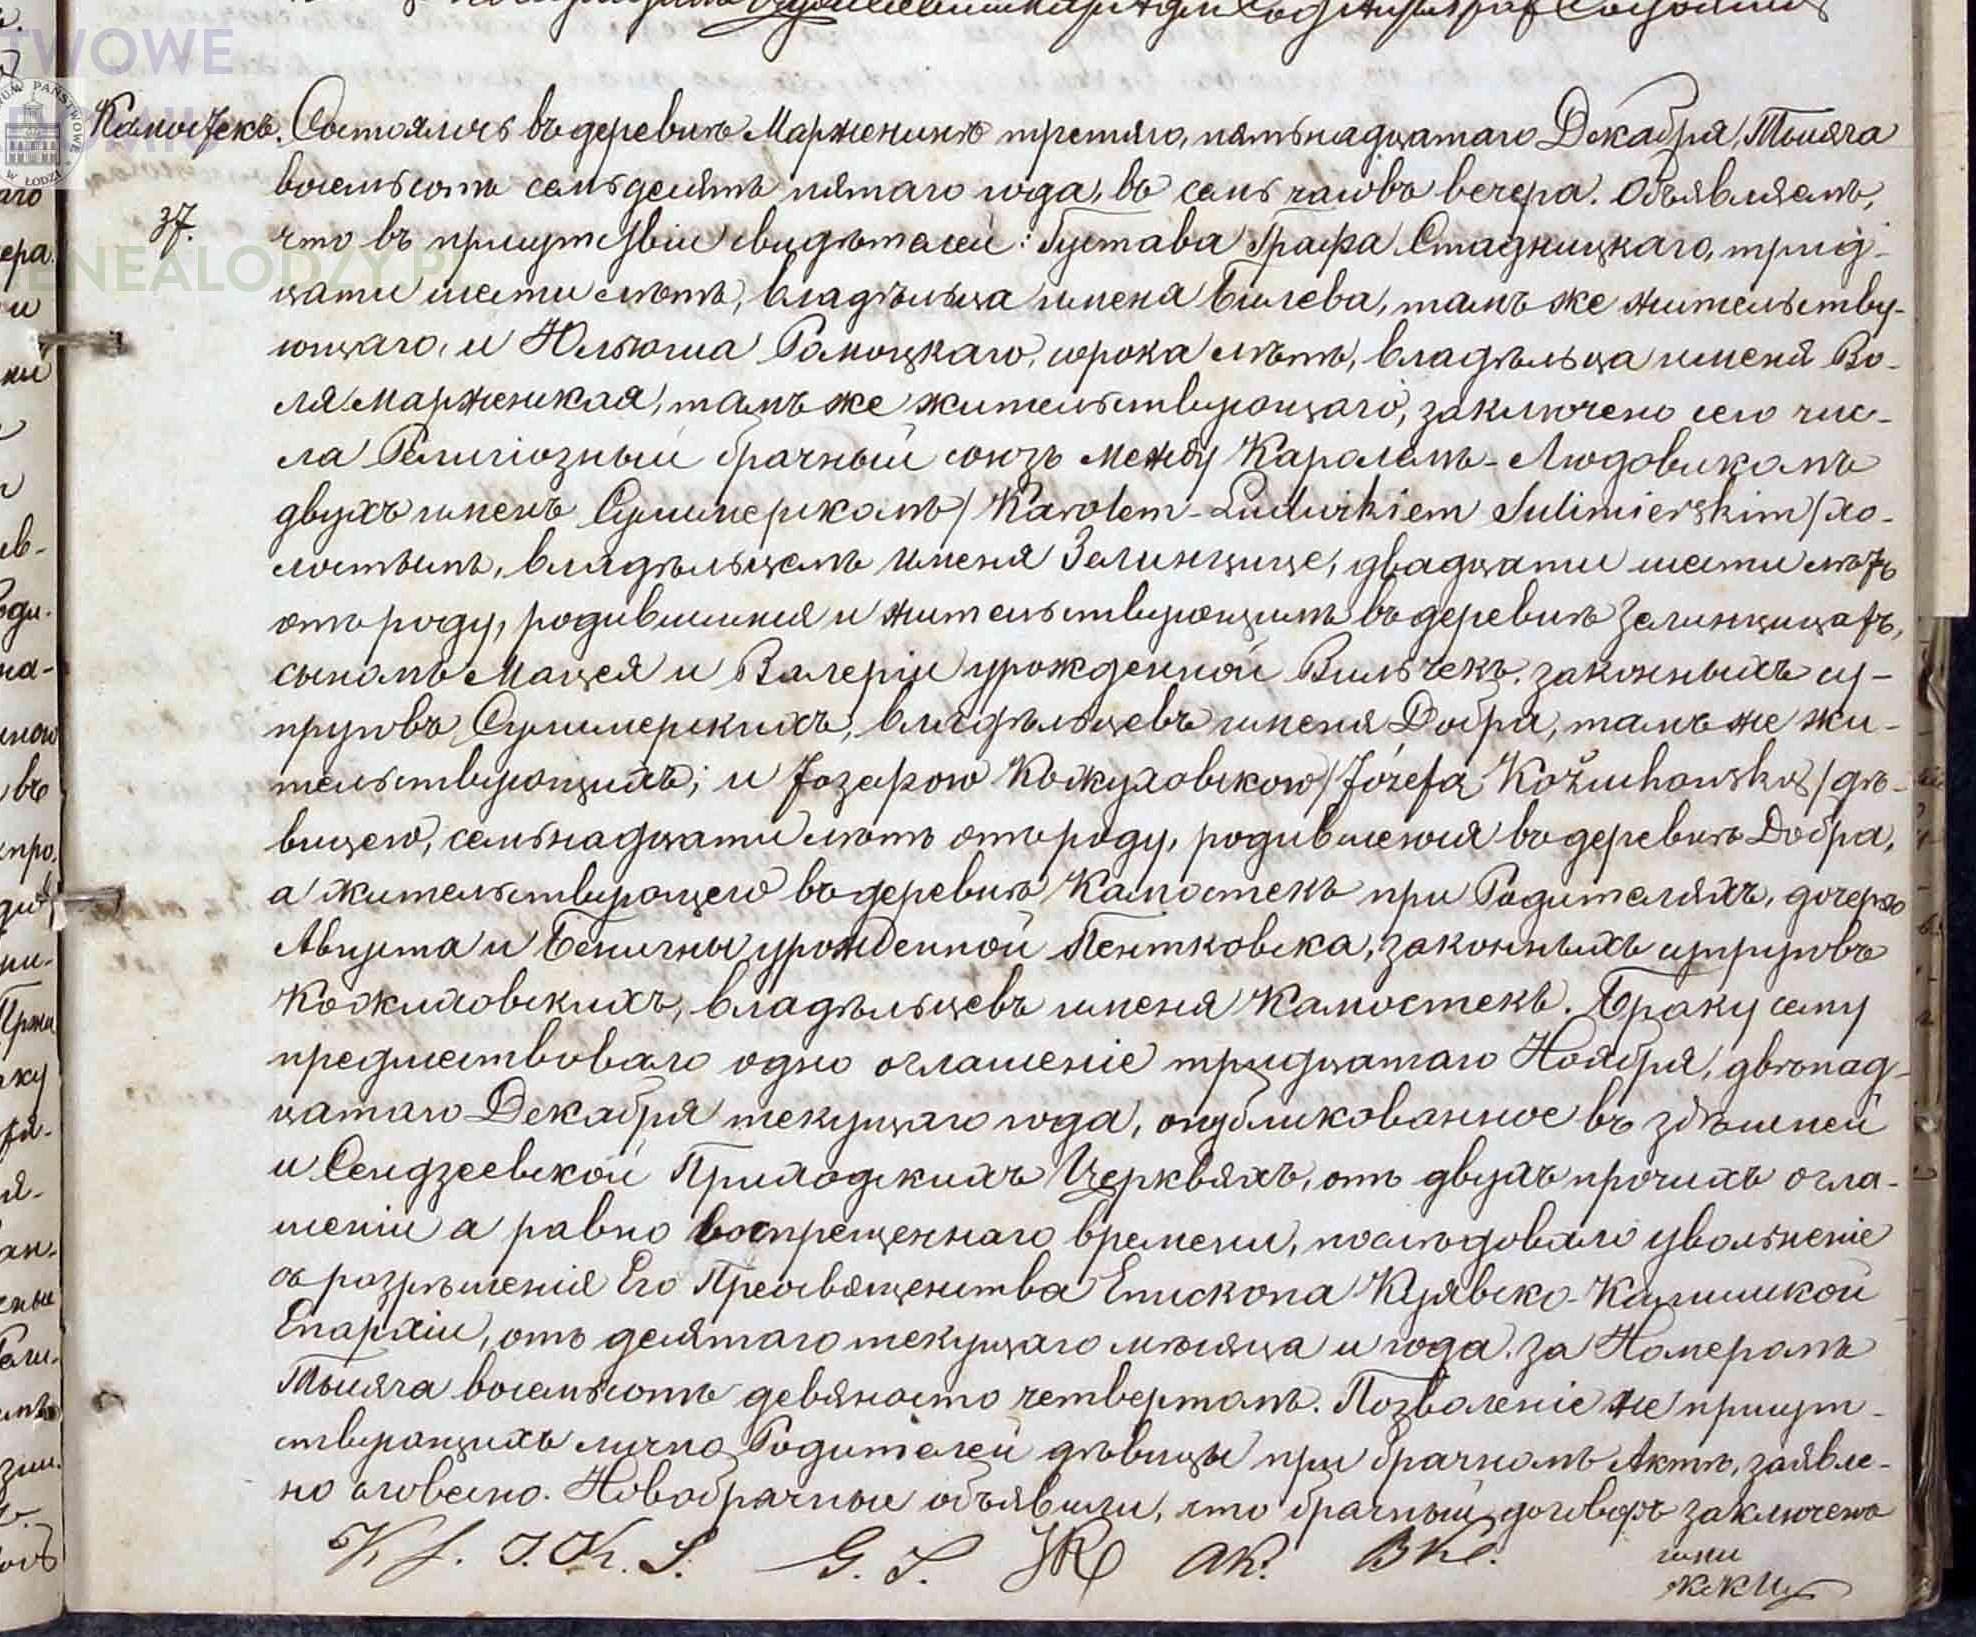 TWOWE
ŁOMIU
GENEALODZY.PL
ARCHIWUM PAŃSTWOWE W ŁODZI
Камостекъ. Состоялось въ деревнѣ Марженинѣ третяго, пятьнадцатаго Декабря, Тысяча
37.
восемьсотъ семьдесятъ пятаго года, въ семь часовъ вечера. Объявляемъ,
что въ присутствіи свидѣтелей: Густава Графа Стадницкаго, трид-
цати шести лѣтъ, владѣльца имена Билева, тамъ же жительству-
ющаго, и Юльюша Ромоцкаго, сорока лѣтъ, владѣльца именя Во-
ля Марженская, тамъ же жительствующаго, заключено сего чис-
ла Религіозный брачный союзъ между Каролемъ-Людовикомъ
двухъ именъ Сулимерскомъ /Karolem-Ludwikiem Sulimierskim/ хо-
лостымъ, владѣльцемъ именя Зелинцице, двадцати шести лѣтъ
отъ роду, родившимся и жительствующимъ въ деревнѣ Зелинцицахъ,
сыномъ Мацея и Валеріи урожденной Вильчекъ законныхъ су-
пруговъ Сулимерскихъ, владѣльцевъ именя Добра, тамъ же жи-
тельствующихъ; и Юзефою Кожуховскою /Józefą Kożuchowską/ дѣ-
вицею, семьнадцати лѣтъ отъ роду, родившеюся въ деревнѣ Добра,
а жительствующею въ деревнѣ Камостекъ при Родителяхъ, дочерью
Августа и Бенигны урожденной Пентковска, законныхъ супруговъ
Кожуховскихъ, владѣльцевъ именя Камостекъ. Браку сему
предшествовало одно оглашеніе тридцатаго Ноября, двѣнад-
цатаго Декабря текущаго года, опубликованное въ здѣшней
и Сендзеевской Приходскихъ Церквяхъ, отъ двухъ прочихъ огла-
шеніи а равно воспрещеннаго времени, послѣдовало увольненіе
съ разрѣшенія Его Преосвященства Епископа Куявско-Калишской
Епархіи, отъ десятаго текущаго мѣсяца и года за Номеромъ
Тысяча восемьсотъ девяносто четвертомъ. Позволеніе же присут-
ствующихъ лично Родителей дѣвицы при брачномъ Актѣ, заявле-
но словесно. Новобрачные объявили, что брачный договоръ заключенъ
K S. J. K. S. G. S. JR AK. BK.